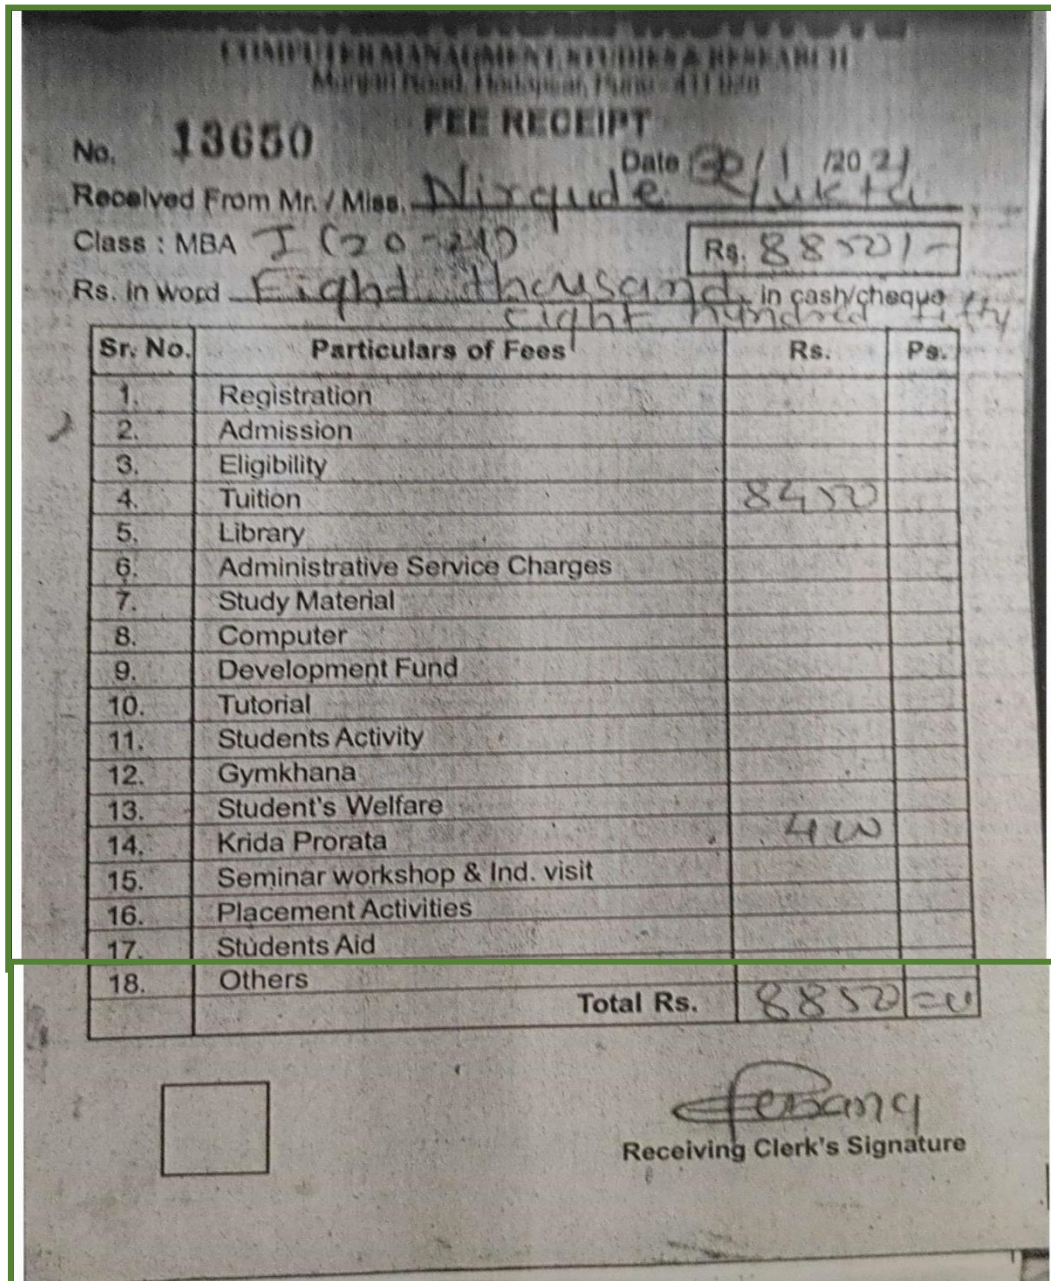 COMPUTER MANAGMENT STUDIES & RESEARCH
Manjari Road, Hadapsar, Pune - 411 028
FEE RECEIPT
No. 13650
Date 30/1/2021
Received From Mr. / Miss. Nirgude Yukta
Class : MBA I (20-21)
Rs. 8850/-
Rs. in word Eight thousand in cash/cheque
eight hundred fifty
Sr. No. Particulars of Fees Rs. Ps.
1. Registration
2. Admission
3. Eligibility
4. Tuition 8450
5. Library
6. Administrative Service Charges
7. Study Material
8. Computer
9. Development Fund
10. Tutorial
11. Students Activity
12. Gymkhana
13. Student's Welfare
14. Krida Prorata 400
15. Seminar workshop & Ind. visit
16. Placement Activities
17. Students Aid
18. Others
Total Rs. 8850=00
Receiving Clerk's Signature